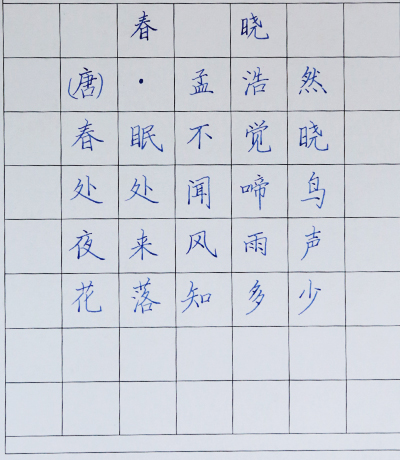 春晓
(唐)·孟浩然
春眠不觉晓
处处闻啼鸟
夜来风雨声
花落知多少